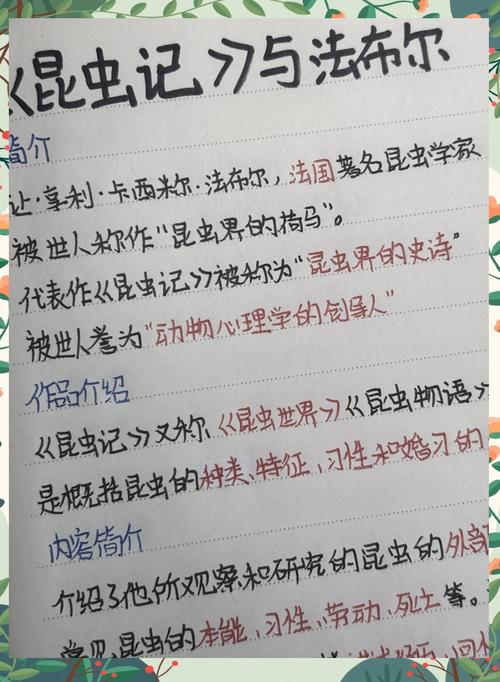 《昆虫记》与法布尔
简介
让·亨利·卡西米尔·法布尔，法国著名昆虫学家
被世人称作“昆虫界的荷马”。
代表作《昆虫记》被称为“昆虫界的史诗”
被世人誉为“动物心理学的创导人”
作品介绍
《昆虫记》又称《昆虫世界》《昆虫物语》
是概括昆虫的种类、特征、习性和婚习的
内容简介
介绍了他所观察和研究的昆虫的外部
常见昆虫的本能、习性、劳动、死亡等。